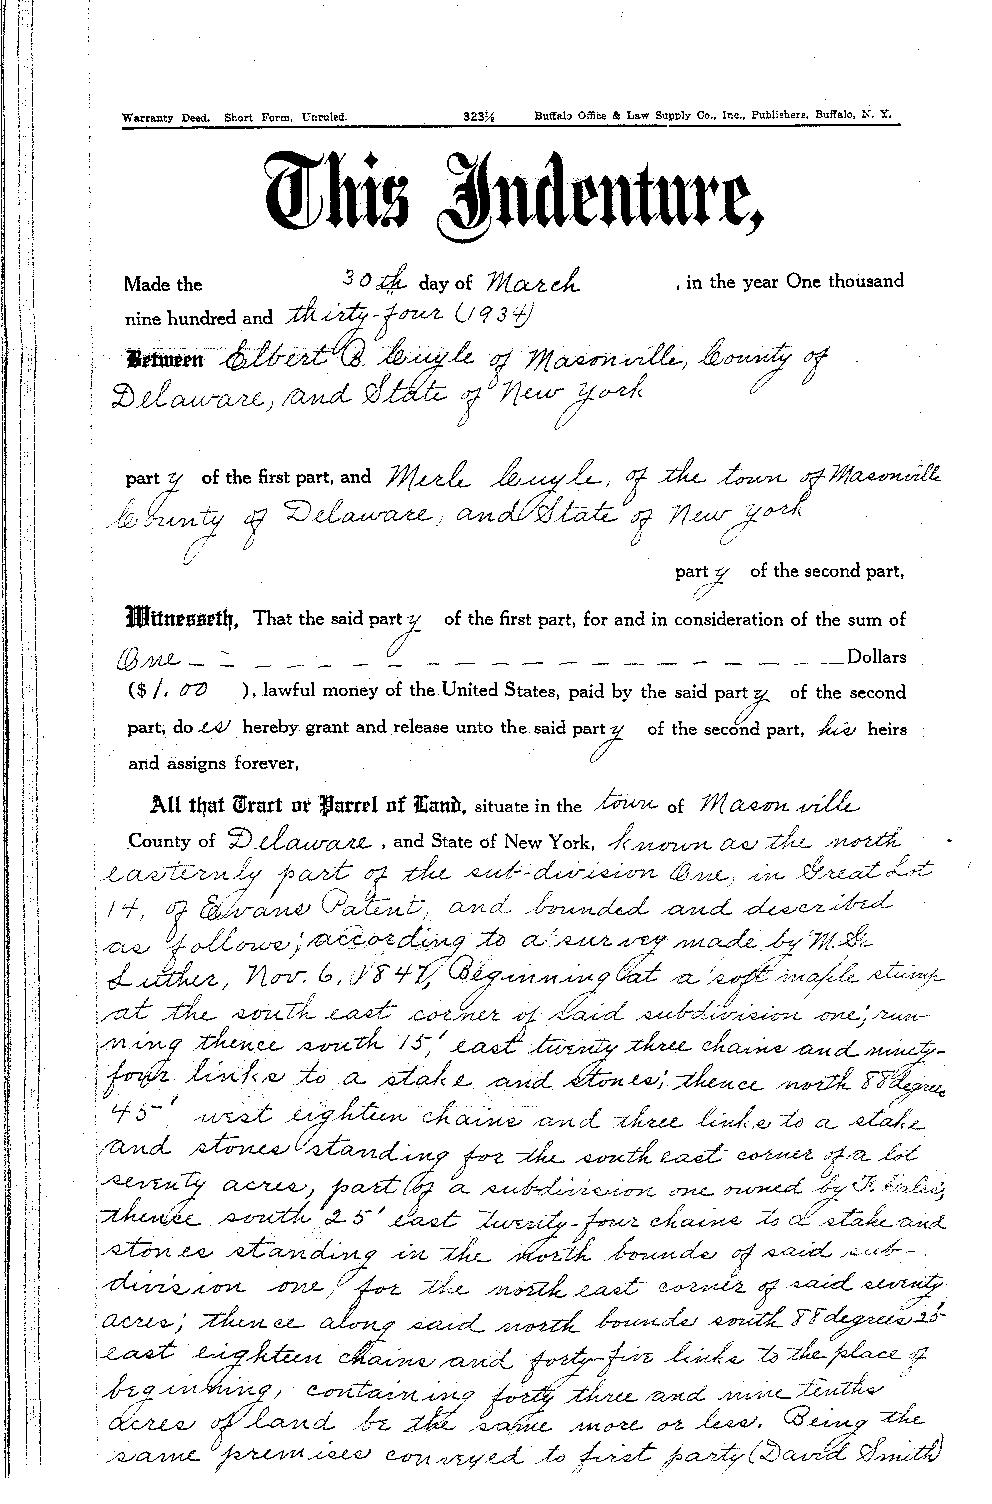 Warranty Deed. Short Form, Unruled. 323½ Buffalo Office & Law Supply Co., Inc., Publishers, Buffalo, N. Y.
This Indenture,
Made the 30th day of March , in the year One thousand
nine hundred and thirty-four (1934)
Between Elbert B Cuyle of Masonville, County of
Delaware, and State of New York
part y of the first part, and Merle Cuyle, of the town of Masonville
County of Delaware, and State of New York
part y of the second part,
Witnesseth, That the said part y of the first part, for and in consideration of the sum of
One – – – – – – – – – – – – – – – – – – – – Dollars
($ 1.00 ), lawful money of the United States, paid by the said part y of the second
part, do es hereby grant and release unto the said part y of the second part, his heirs
and assigns forever,
All that Tract or Parcel of Land, situate in the town of Masonville
County of Delaware , and State of New York, known as the north
easternly part of the sub-division One, in Great Lot
14, of Ewans Patent, and bounded and described
as follows; according to a survey made by M.
Luther, Nov. 6, 1847, Beginning at a soft maple stump
at the south east corner of said subdivision one; run-
ning thence south 15' east twenty three chains and ninety-
four links to a stake and stones; thence north 88 degrees
45' west eighteen chains and three links to a stake
and stones standing for the south east corner of a lot
seventy acres, part of a subdivision one owned by F.
thense south 25' east twenty-four chains to a stake and
stones standing in the north bounds of said sub-
division one, for the north east corner of said seventy
acres; thence along said north bounds south 88 degrees 25'
east eighteen chains and forty-five links to the place of
beginning, containing forty three and nine tenths
acres of land be the same more or less. Being the
same premises conveyed to first party (David Smith)